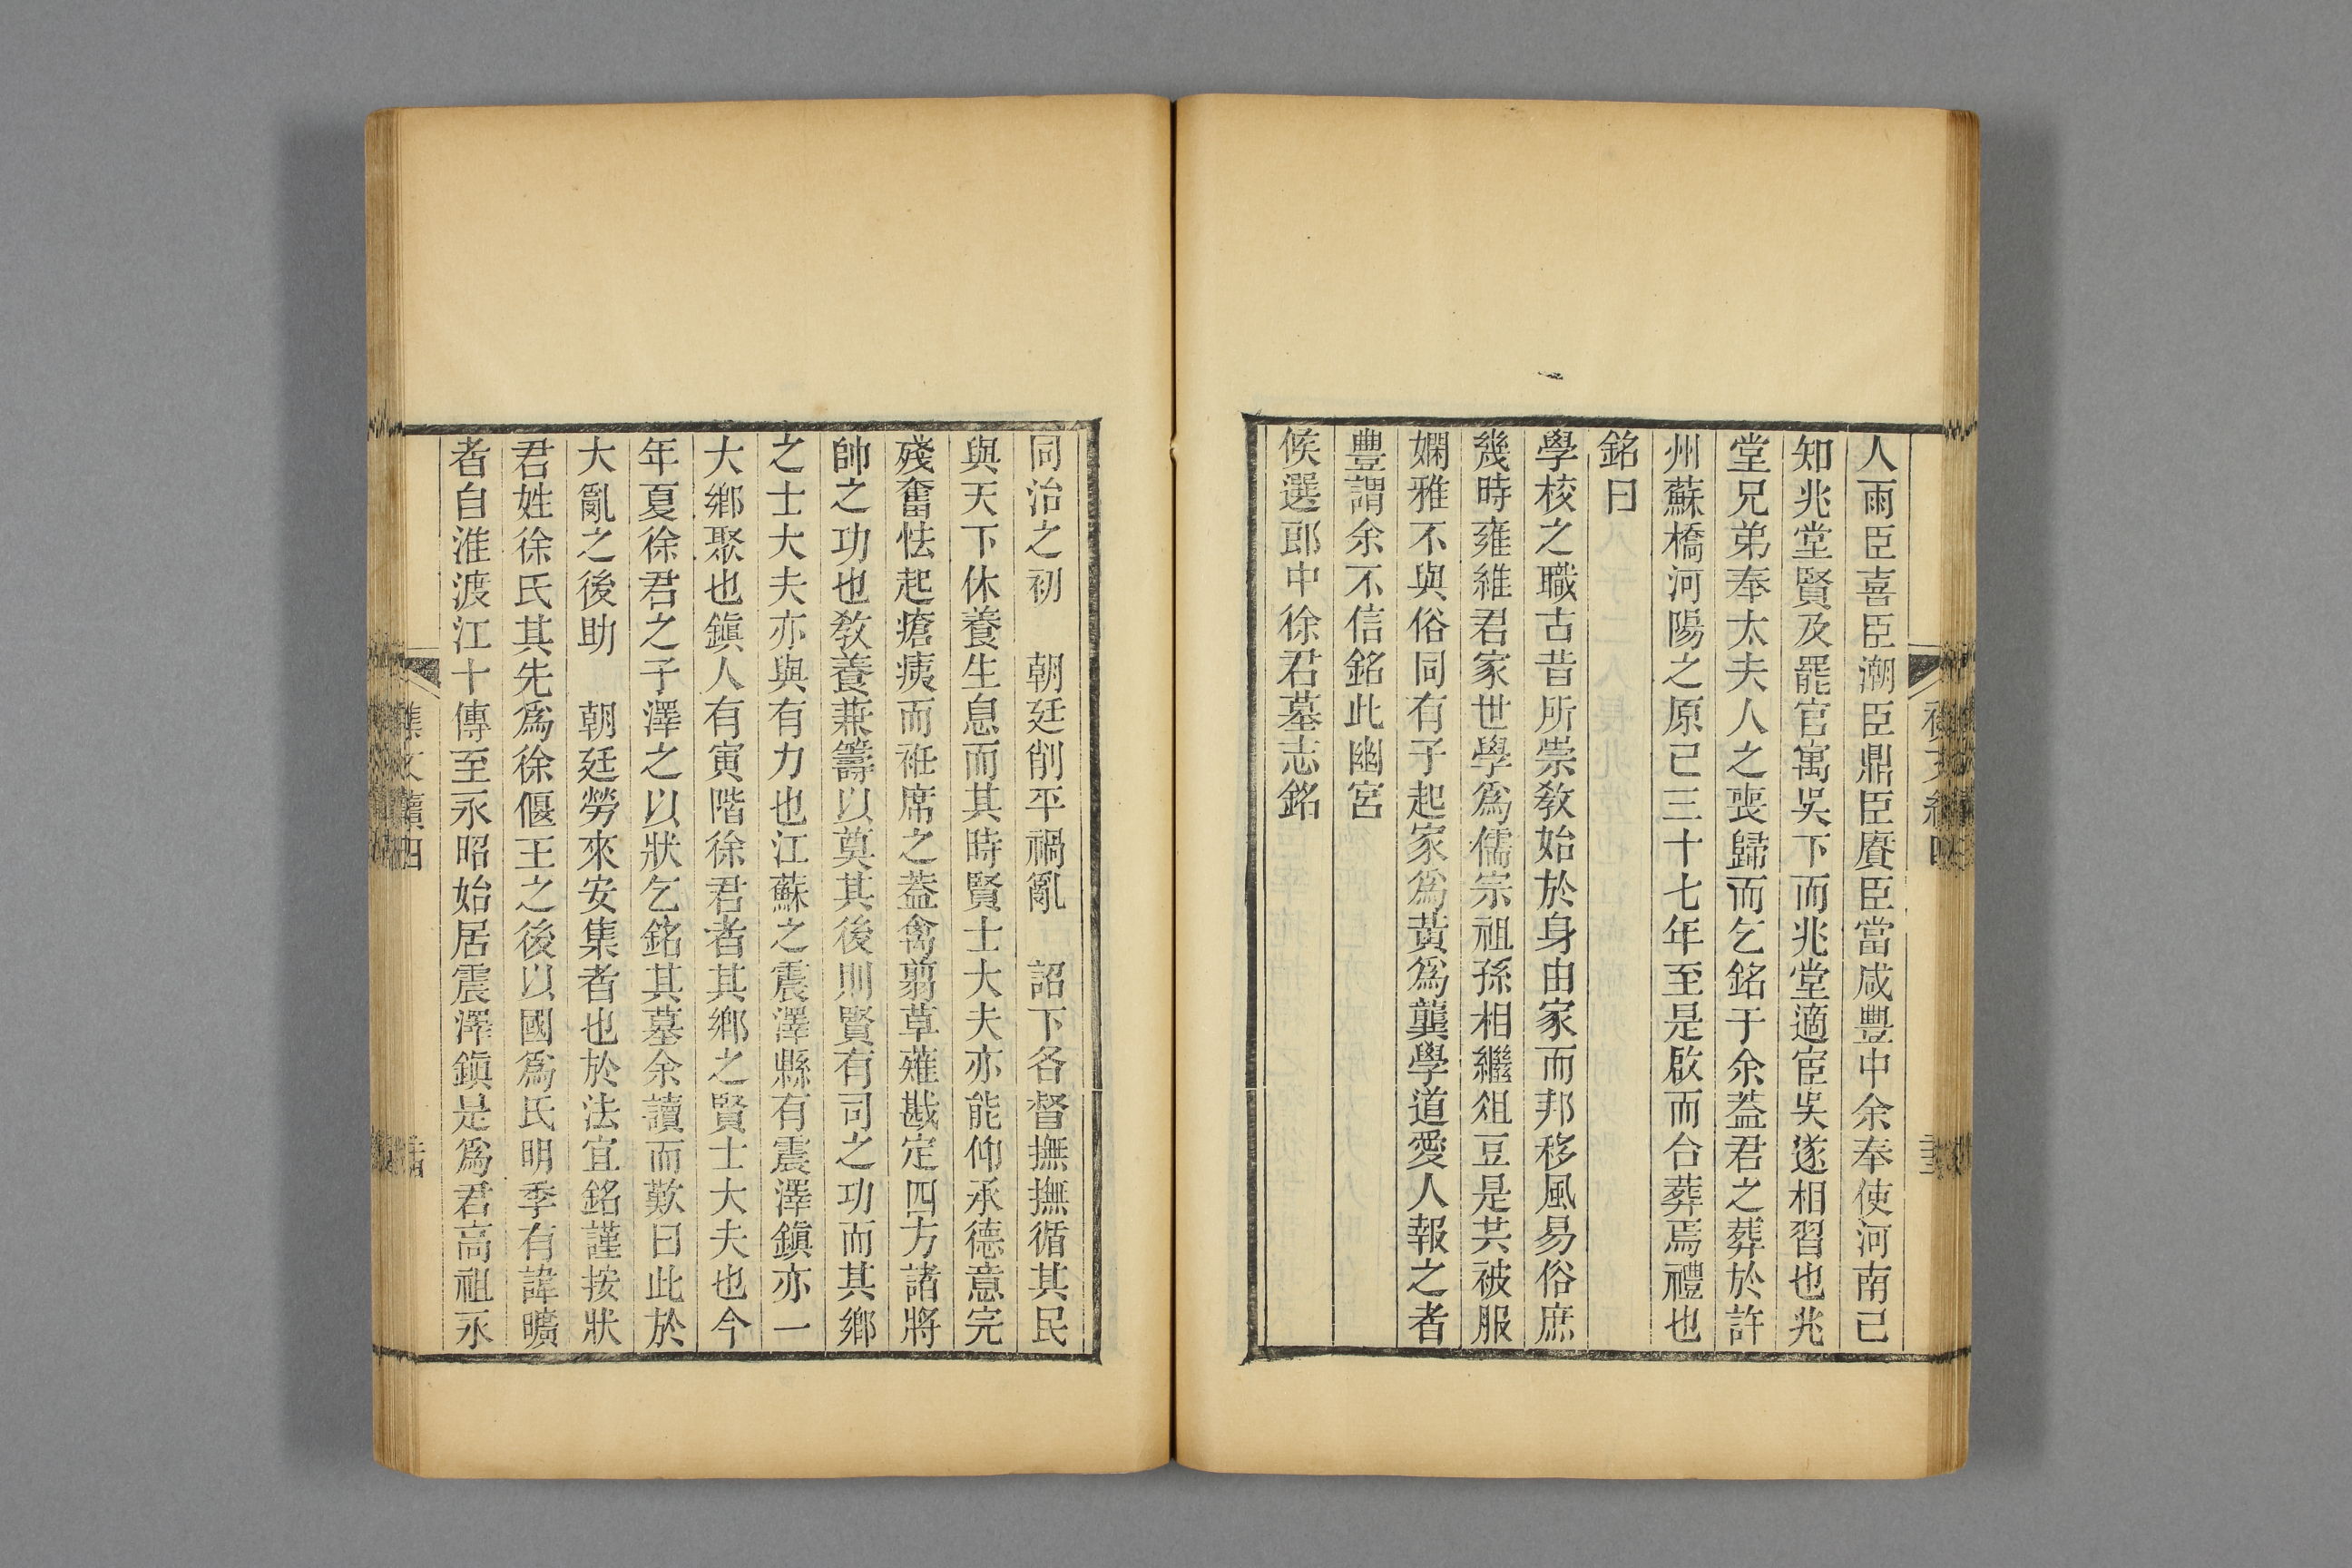 人雨臣喜臣潮臣鼎臣賡臣當咸豐中余奉使河南已
知兆堂賢及罷官寓吳下而兆堂適宦吳遂相習也兆
堂兄弟奉太夫人之喪歸而乞銘于余葢君之葬於許
州蘇橋河陽之原已三十七年至是啟而合葬焉禮也
銘曰
學校之職古昔所崇敎始於身由家而邦移風易俗庶
幾時雍維君家世學爲儒宗祖孫相繼俎豆是共被服
嫻雅不與俗同有子起家爲黃爲龔學道愛人報之者
豐謂余不信銘此幽宮
候選郎中徐君墓志銘
同治之初　朝廷削平禍亂　詔下各督撫撫循其民
與天下休養生息而其時賢士大夫亦能仰承德意完
殘奮怯起瘡痍而袵席之葢禽翦草薙戡定四方諸將
帥之功也敎養兼籌以奠其後則賢有司之功而其鄉
之士大夫亦與有力也江蘇之震澤縣有震澤鎭亦一
大鄉聚也鎭人有寅階徐君者其鄉之賢士大夫也今
年夏徐君之子澤之以狀乞銘其墓余讀而歎曰此於
大亂之後助　朝廷勞來安集者也於法宜銘謹按狀
君姓徐氏其先爲徐偃王之後以國爲氏明季有諱曠
者自淮渡江十傳至永昭始居震澤鎭是爲君高祖永